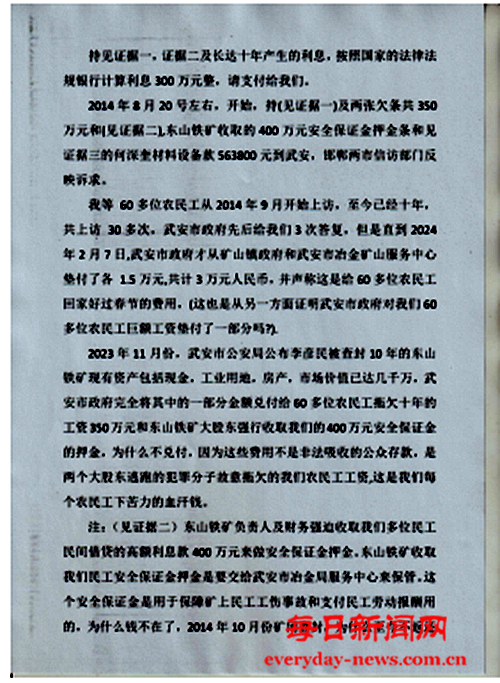 持见证据一，证据二及长达十年产生的利息，按照国家的法律法
规银行计算利息 300 万元整，请支付给我们。
2014 年 8 月 20 号左右，开始，持(见证据一)及两张欠条共 350
万元和(见证据二),东山铁矿收取的 400 万元安全保证金押金条和见
证据三的何深奎材料设备款 563800 元到武安，邯郸两市信访部门反
映诉求。
我等 60 多位农民工从 2014 年 9 月开始上访，至今已经十年，
共上访 30 多次，武安市政府先后给我们 3 次答复，但是直到 2024
年 2 月 7 日,武安市政府才从矿山镇政府和武安市冶金矿山服务中心
垫付了各 1.5 万元,共计 3 万元人民币，并声称这是给 60 多位农民工
回家好过春节的费用，(这也是从另一方面证明武安市政府对我们 60
多位农民工巨额工资垫付了一部分吗?).
2023 年 11 月份，武安市公安局公布李彦民被查封 10 年的东山
铁矿现有资产包括现金，工业用地，房产，市场价值已达几千万，武
安市政府完全将其中的一部分金额兑付给 60 多位农民工拖欠十年的
工资 350 万元和东山铁矿大股东强行收取我们的 400 万元安全保证金
的押金，为什么不兑付，因为这些费用不是非法吸收的公众存款，是
两个大股东逃跑的犯罪分子故意拖欠的我们农民工工资,这是我们每
个农民工下苦力的血汗钱。
注：（见证据二）东山铁矿负责人及财务强迫收取我们多位民工
民间借贷的高额利息款 400 万元来做安全保证金押金，东山铁矿收取
我们民工安全保证金押金是要交给武安市冶金局服务中心来保管，这
个安全保证金是用于保障矿上民工工伤事故和支付民工劳动报酬用
的，为什么钱不在了，2014 年 10 月份矿
每日新闻网
everyday-news.com.cn